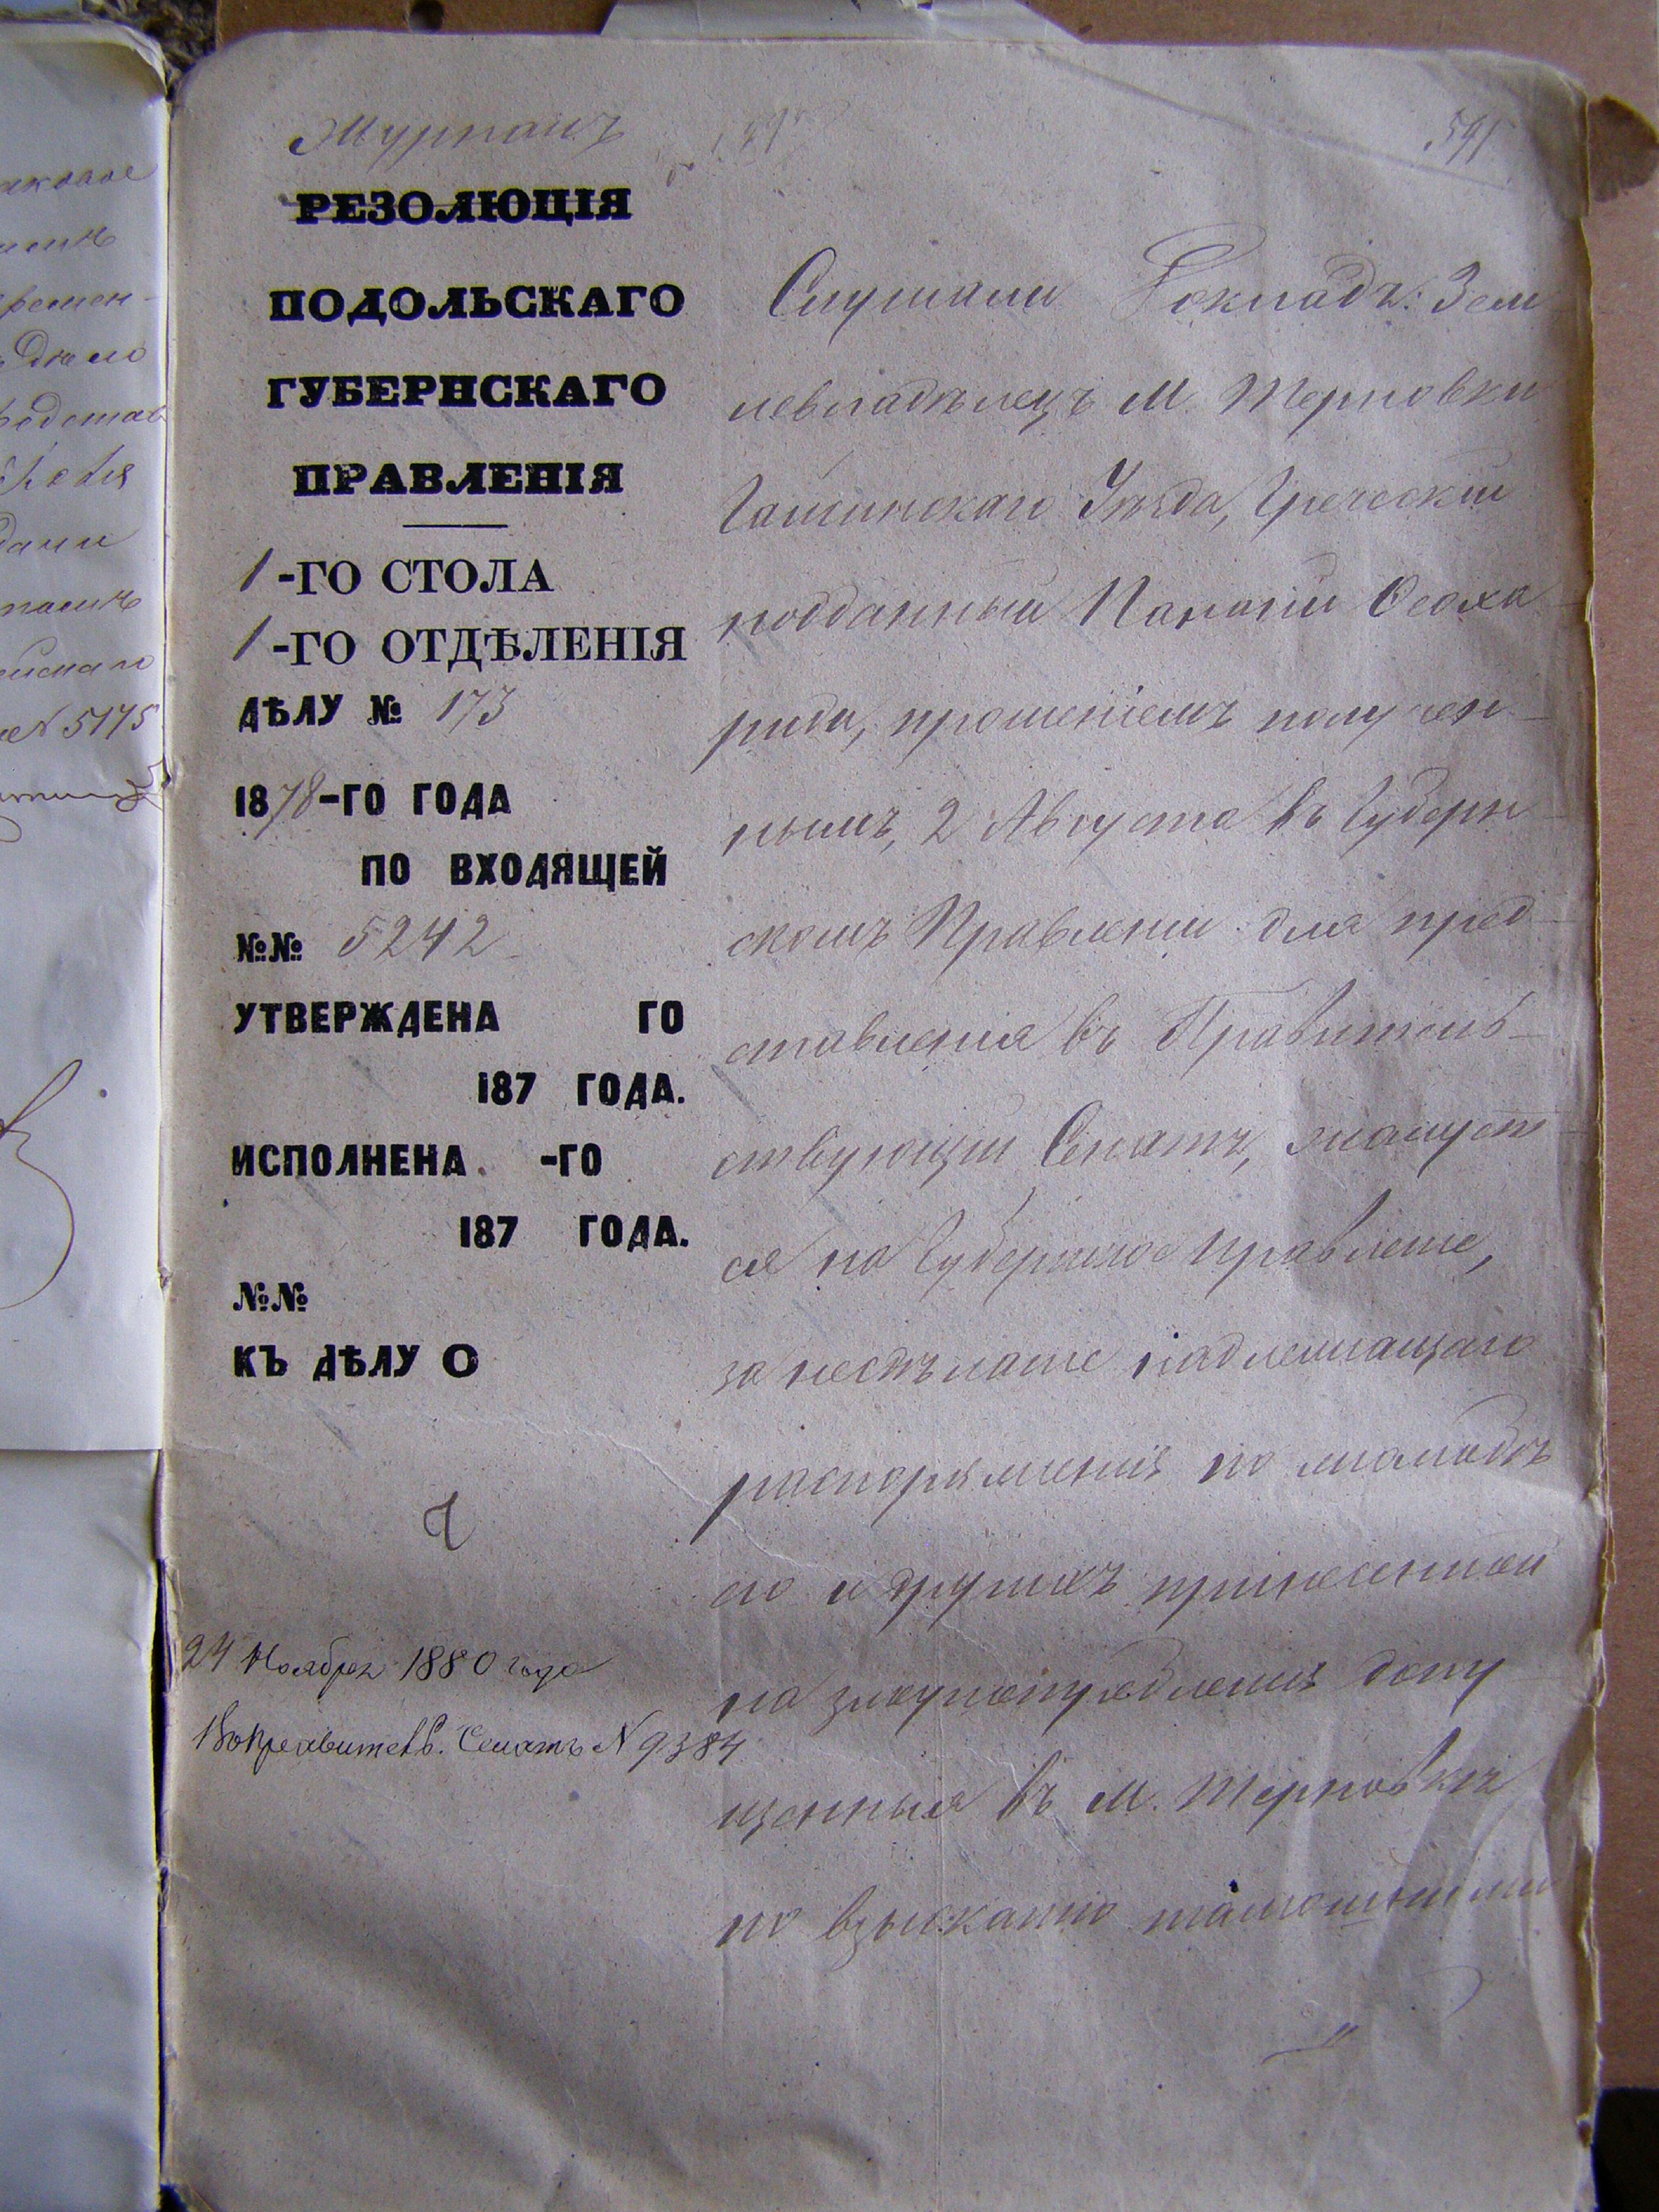 Журналъ
591
РЕЗОЛЮЦІЯ
ПОДОЛЬСКАГО
ГУБЕРНСКАГО
ПРАВЛЕНІЯ
1-ГО СТОЛА
1-ГО ОТДѢЛЕНІЯ
ДѢЛУ № 173
1878-ГО ГОДА
ПО ВХОДЯЩЕЙ
№№ 5242
УТВЕРЖДЕНА ГО
187 ГОДА.
ИСПОЛНЕНА -ГО
187 ГОДА.
№№
КЪ ДѢЛУ О
24 Ноября 1880 года
въ Правительс. Сенатъ № 9384
Слушали Докладъ: Зем
левладѣлецъ М. Терновки
Гайсинскаго Уѣзда, Греческій
подданный Панагій Ѳеоха-
риди, прошеніемъ получен-
нымъ, 2 Августа въ Губерн-
скомъ Правленіи для пред-
ставленія въ Правитель-
ствующій Сенатъ, жалует-
ся на Губернское Правленіе,
за несдѣланіе надлежащаго
распоряженія по жалобѣ
его и другихъ принесенной
на злоупотребленія допу
щенныя въ М. Терновкѣ
по взысканію тамошними
аковое
времен-
Дѣло
редстав
дачи
№ 5175